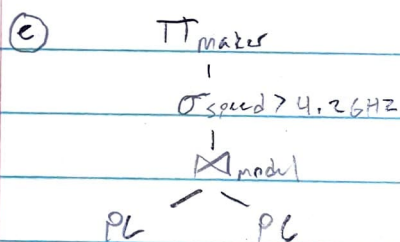 ⓔ π maker
σ speed > 4.2GHZ
⋈ model
PC PC